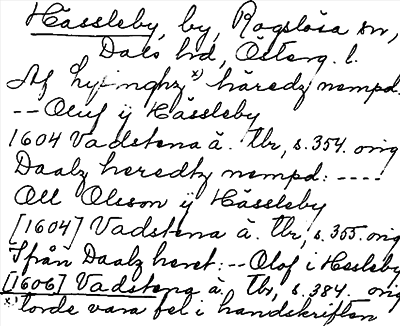 Hässleby, by, Rogslösa sn,
Dals hd, Österg. l.
Af Lysinghz x) häredz nempd.
-- Oluf ÿ Hässleby
1604 Vadstena ä. tbr, s. 354. orig
Daalz heredtz nempd: ----
Oll Olsson ÿ Hässleby
[1604] Vadstena ä. tbr, s. 355. orig
Ifrån Daalz heret: -- Olof i Hesleby
[1606] Vadstena ä. tbr, s. 384. orig
x) torde vara fel i handskriften